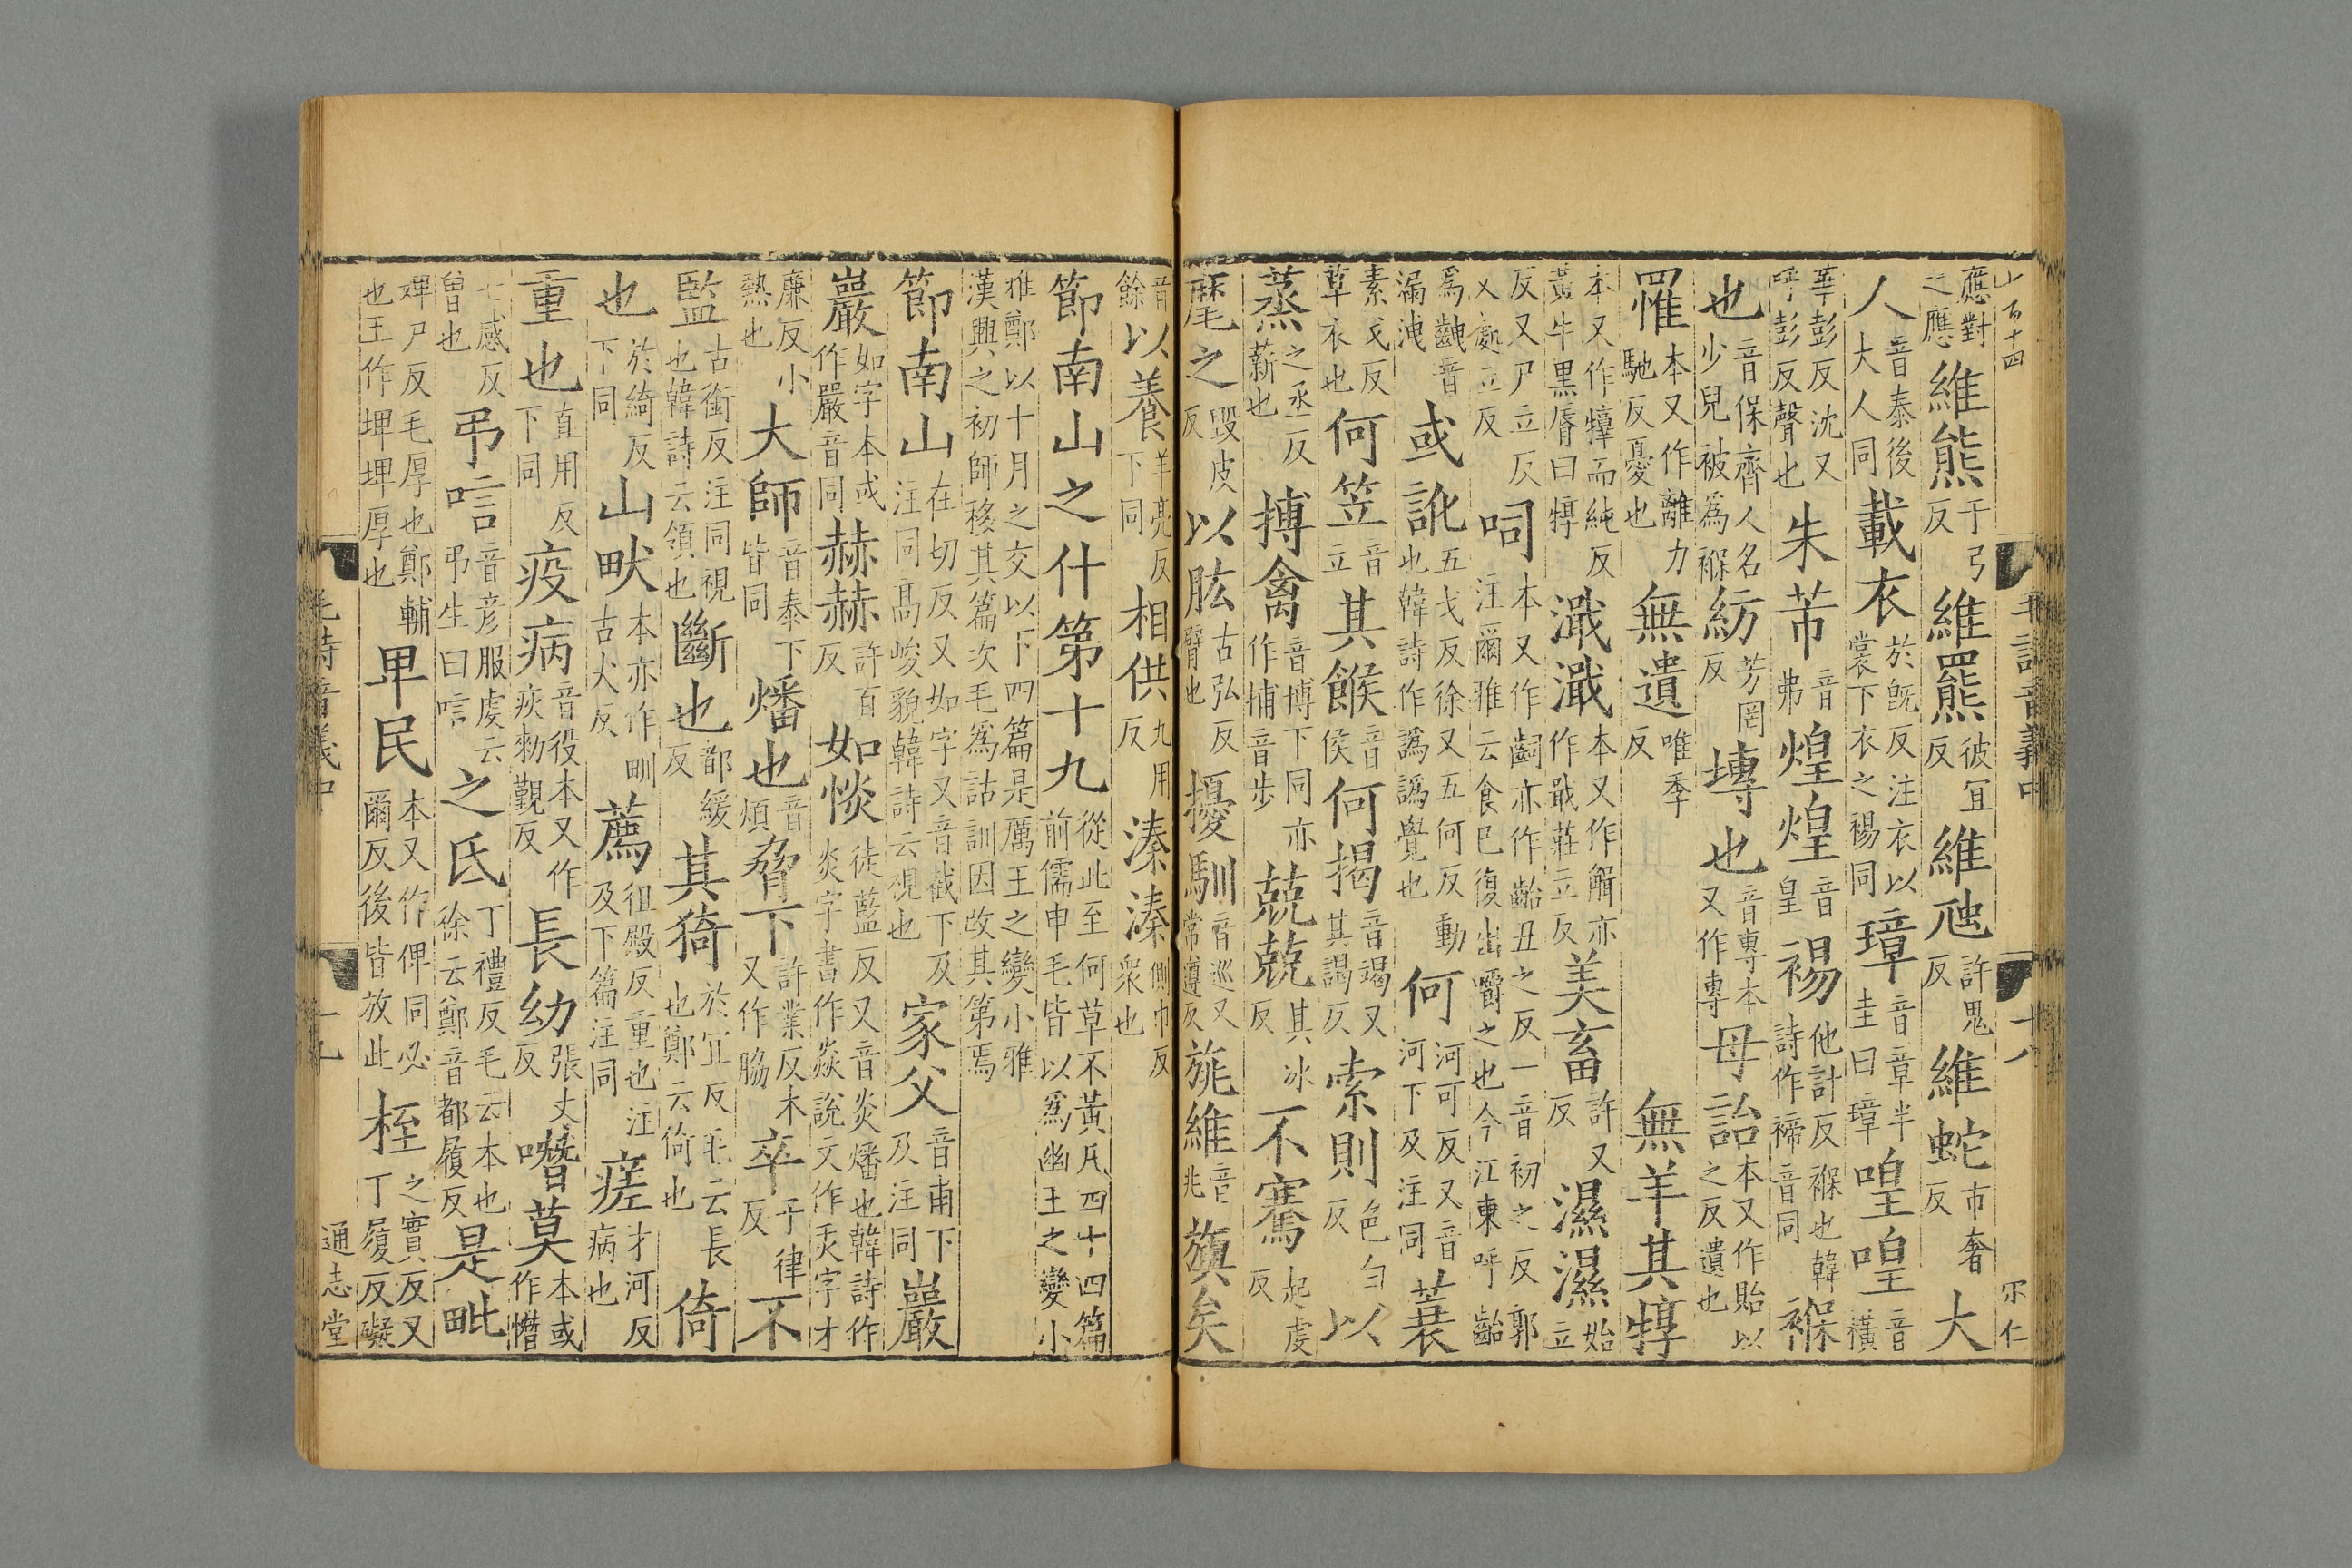 山百十四
毛詩音義中 十八
宋仁
應對之應維熊于弓反維羆彼宜反維虺許鬼反維蛇市奢反大
人音泰後大人同載衣於旣反注衣以裳下衣之裼同璋音章半圭曰璋喤喤音橫
華彭反沈又呼彭反聲也朱芾音弗煌煌音皇裼他計反褓也韓詩作褅音同褓
也音保齊人名少兒被爲褓紡芳罔反塼也音專本又作專母詒本又作貽以之反遺也
罹本又作離力馳反憂也無遺唯季反無羊其犉
本又作㹊而純反黃牛黑脣曰犉濈濈本又作觧亦作戢莊立反美畜許又反濕濕始立
反又尸立反又處立反呞本又作齝亦作齝丑之反一音初之反郭注爾雅云食已復出嚼之也今江東呼齝
爲齥音漏洩或訛五戈反徐又五何反動也韓詩作譌譌覺也何河可反又音河下及注同蓑
素戈反草衣也何笠音立其餱音侯何揭音竭又其謁反索則色白反以
蒸之丞反薪也搏禽音博下同亦作捕音步兢兢其冰反不騫起虔反
麾之毀皮反以肱古弘反臂也擾馴音巡又常遵反旐維音兆旟矣
音餘以養羊亮反下同相供九用反溱溱側巾反衆也
節南山之什第十九從此至何草不黃凡四十四篇前儒申毛皆以爲幽王之變小
雅鄭以十月之交以下四篇是厲王之變小雅漢興之初師移其篇次毛爲詁訓因改其第焉
節南山在切反又如字又音截下及注同高峻貌韓詩云視也家父音甫下及注同巖
巖如字本或作嚴音同赫赫許百反如惔徒藍反又音炎燔也韓詩作炎字書作焱說文作炗字才
廉反小熱也大師音泰下皆同燔也音煩脅下許業反本又作脇卒于律反不
監古銜反注同視也韓詩云領也斷也都緩反其猗於宜反毛云長也鄭云倚也倚
也於綺反下同山畎本亦作甽古犬反薦徂殿反重也注及下篇注同瘥才河反病也
重也直用反下同疫病音役本又作疢勑覲反長幼張丈反噆莫本或作憯
七感反曾也弔唁音彦服虔云弔生曰唁之氐丁禮反毛云本也徐云鄭音都履反是毗
婢尸反毛厚也鄭輔也王作埤埤厚也卑民本又作俾同必爾反後皆放此桎之實反又丁履反礙
毛詩音義中 十九
通志堂